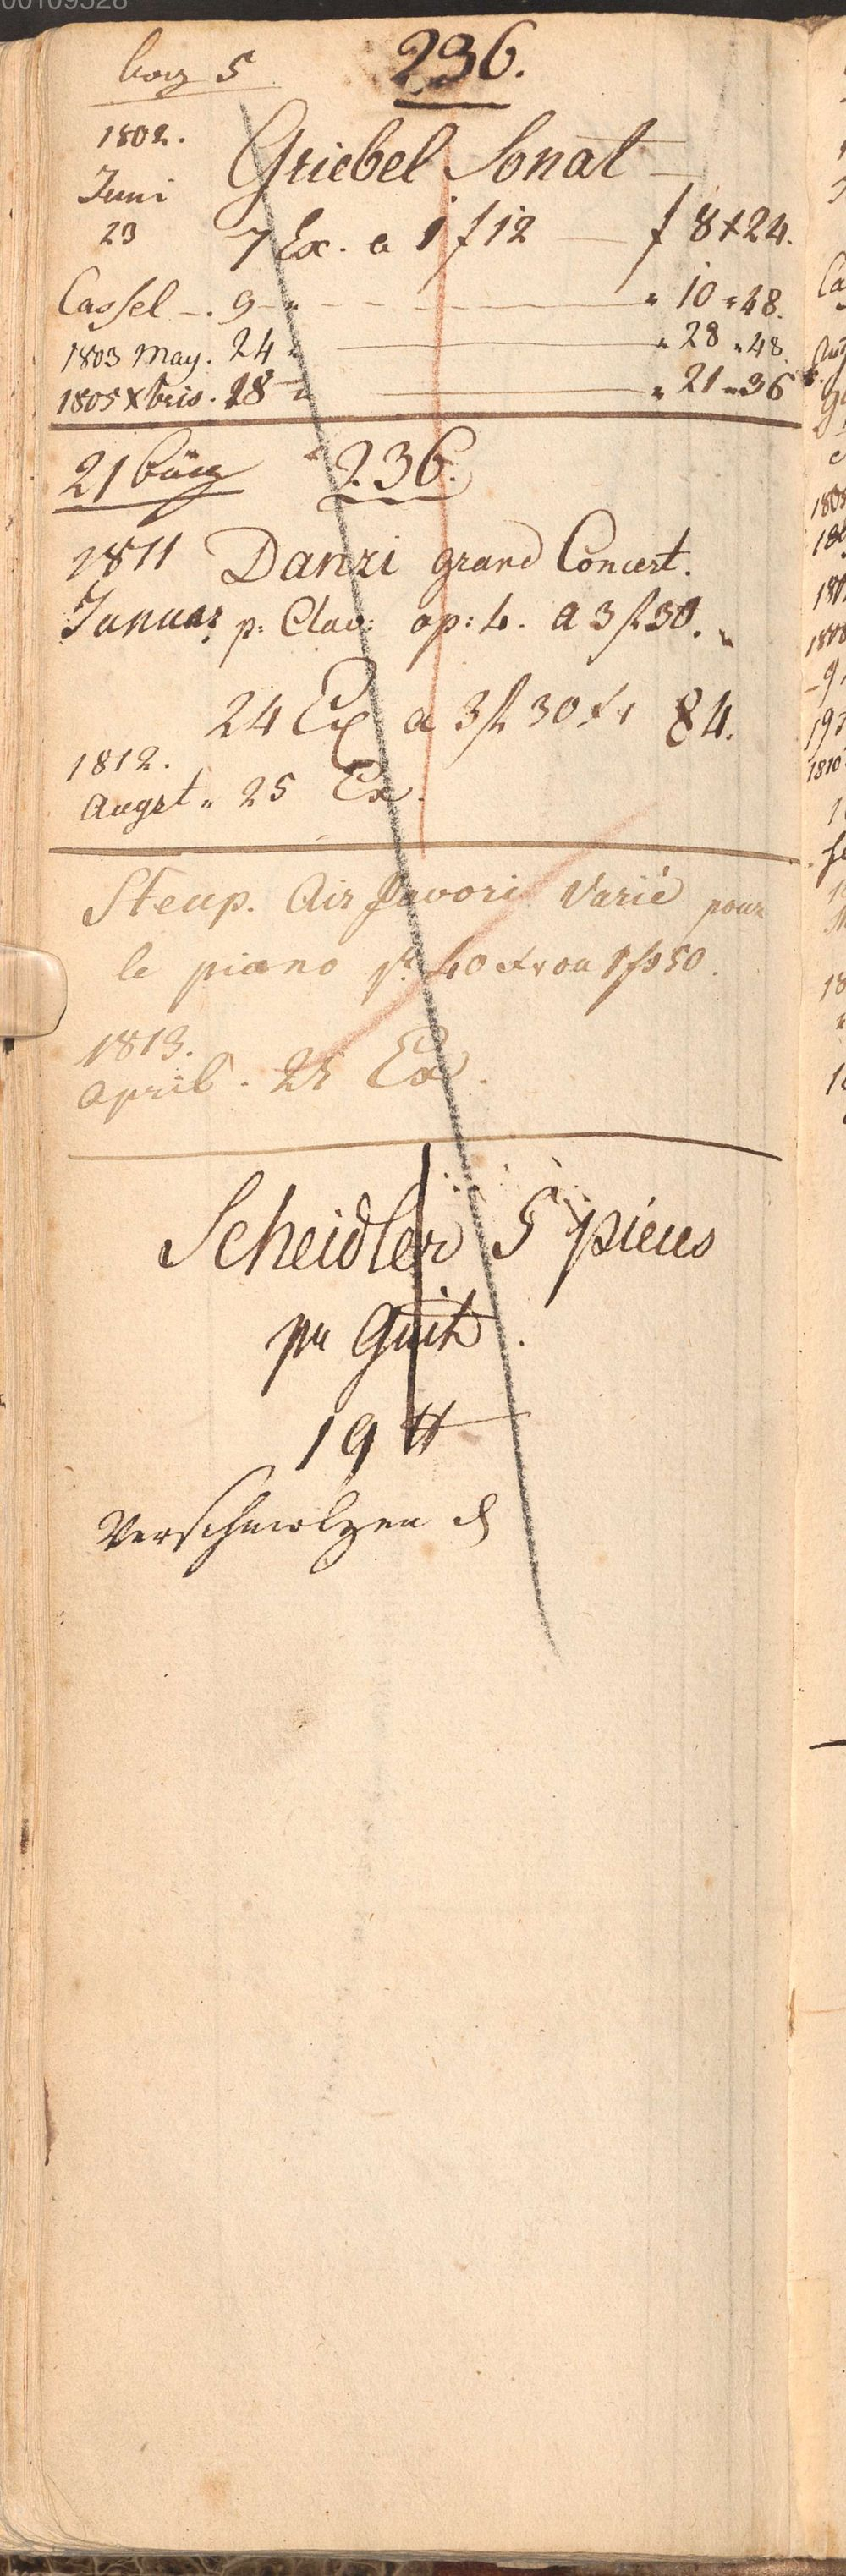 00109528
bog 5 236.
1802. Griebel Sonat
Juni
23 7 Ex. a 1 f 12 — f 8 x 24.
Cassel —. 9 " — " 10 " 48.
1803 May. 24 " — " 28 " 48.
1805 Xbris. 18 " — " 21 " 36
21 236.
1811 Danzi grand Concert.
Januar p: Clav: op: 4. a 3 fl 30.
24 Ex a 3 fl 30 xr 84.
1812.
Augst " 25 Ex.
Steup. Air favori Varié pour
le piano 40 xr ou 1 f 50.
1813.
April. 25 Ex.
Scheidler 5 pieces
pr Guit.
19 #
Verschmolzen